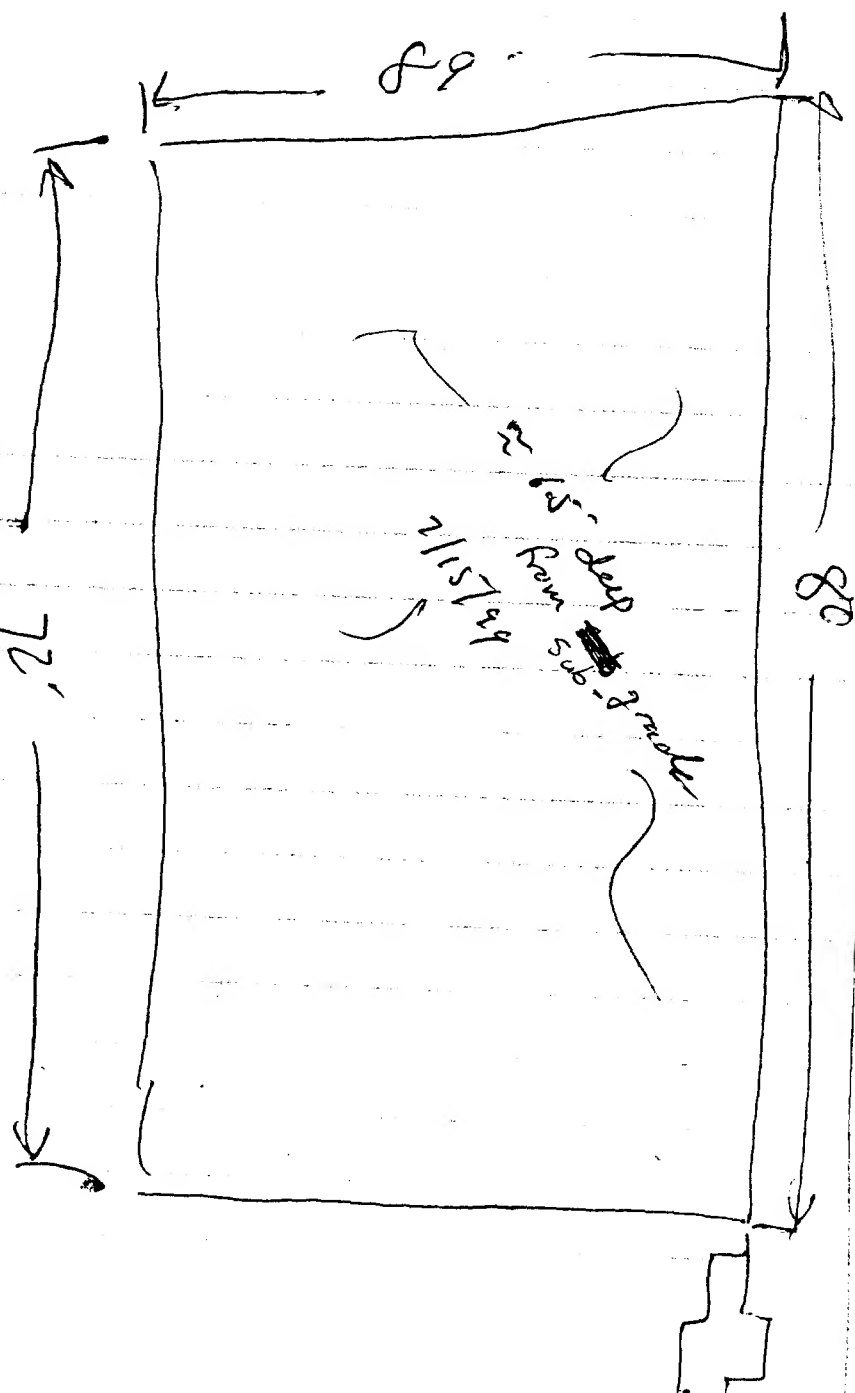 80
72'
≈ 15' deep
from sub-grade
2/15/99